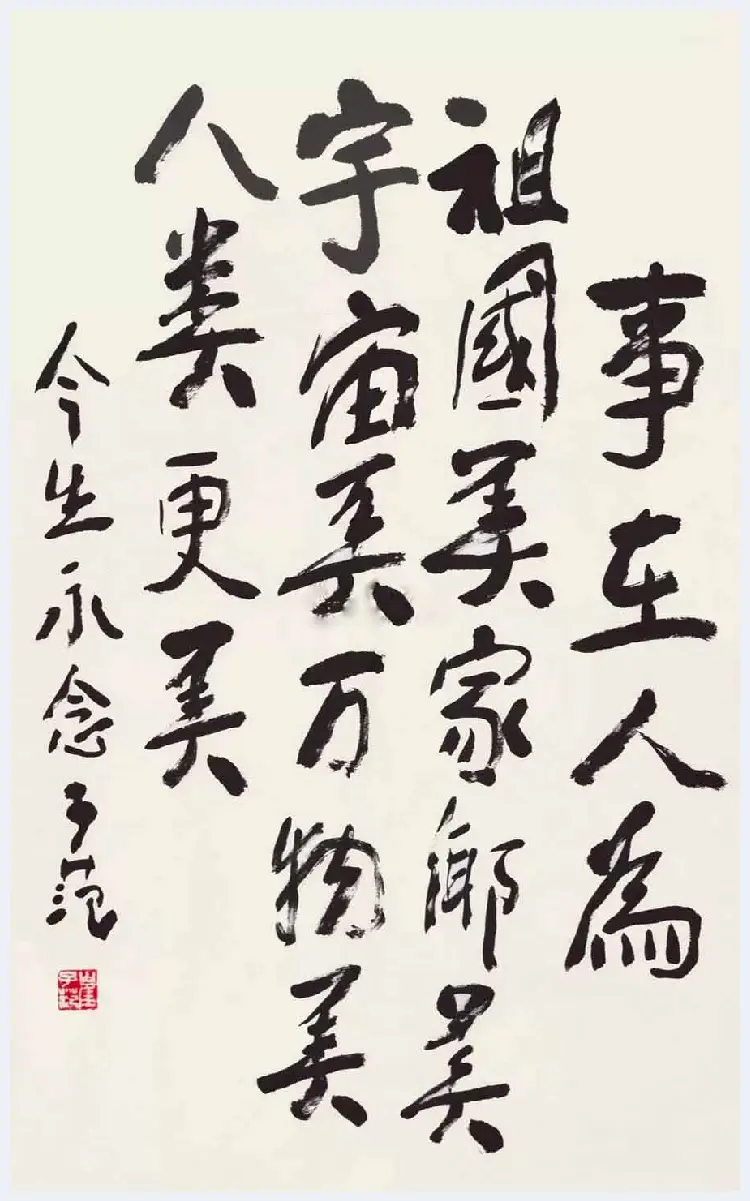 事在人為
祖國美家鄉美
宇宙美万物美
人类更美
今生永念子范
崔子范